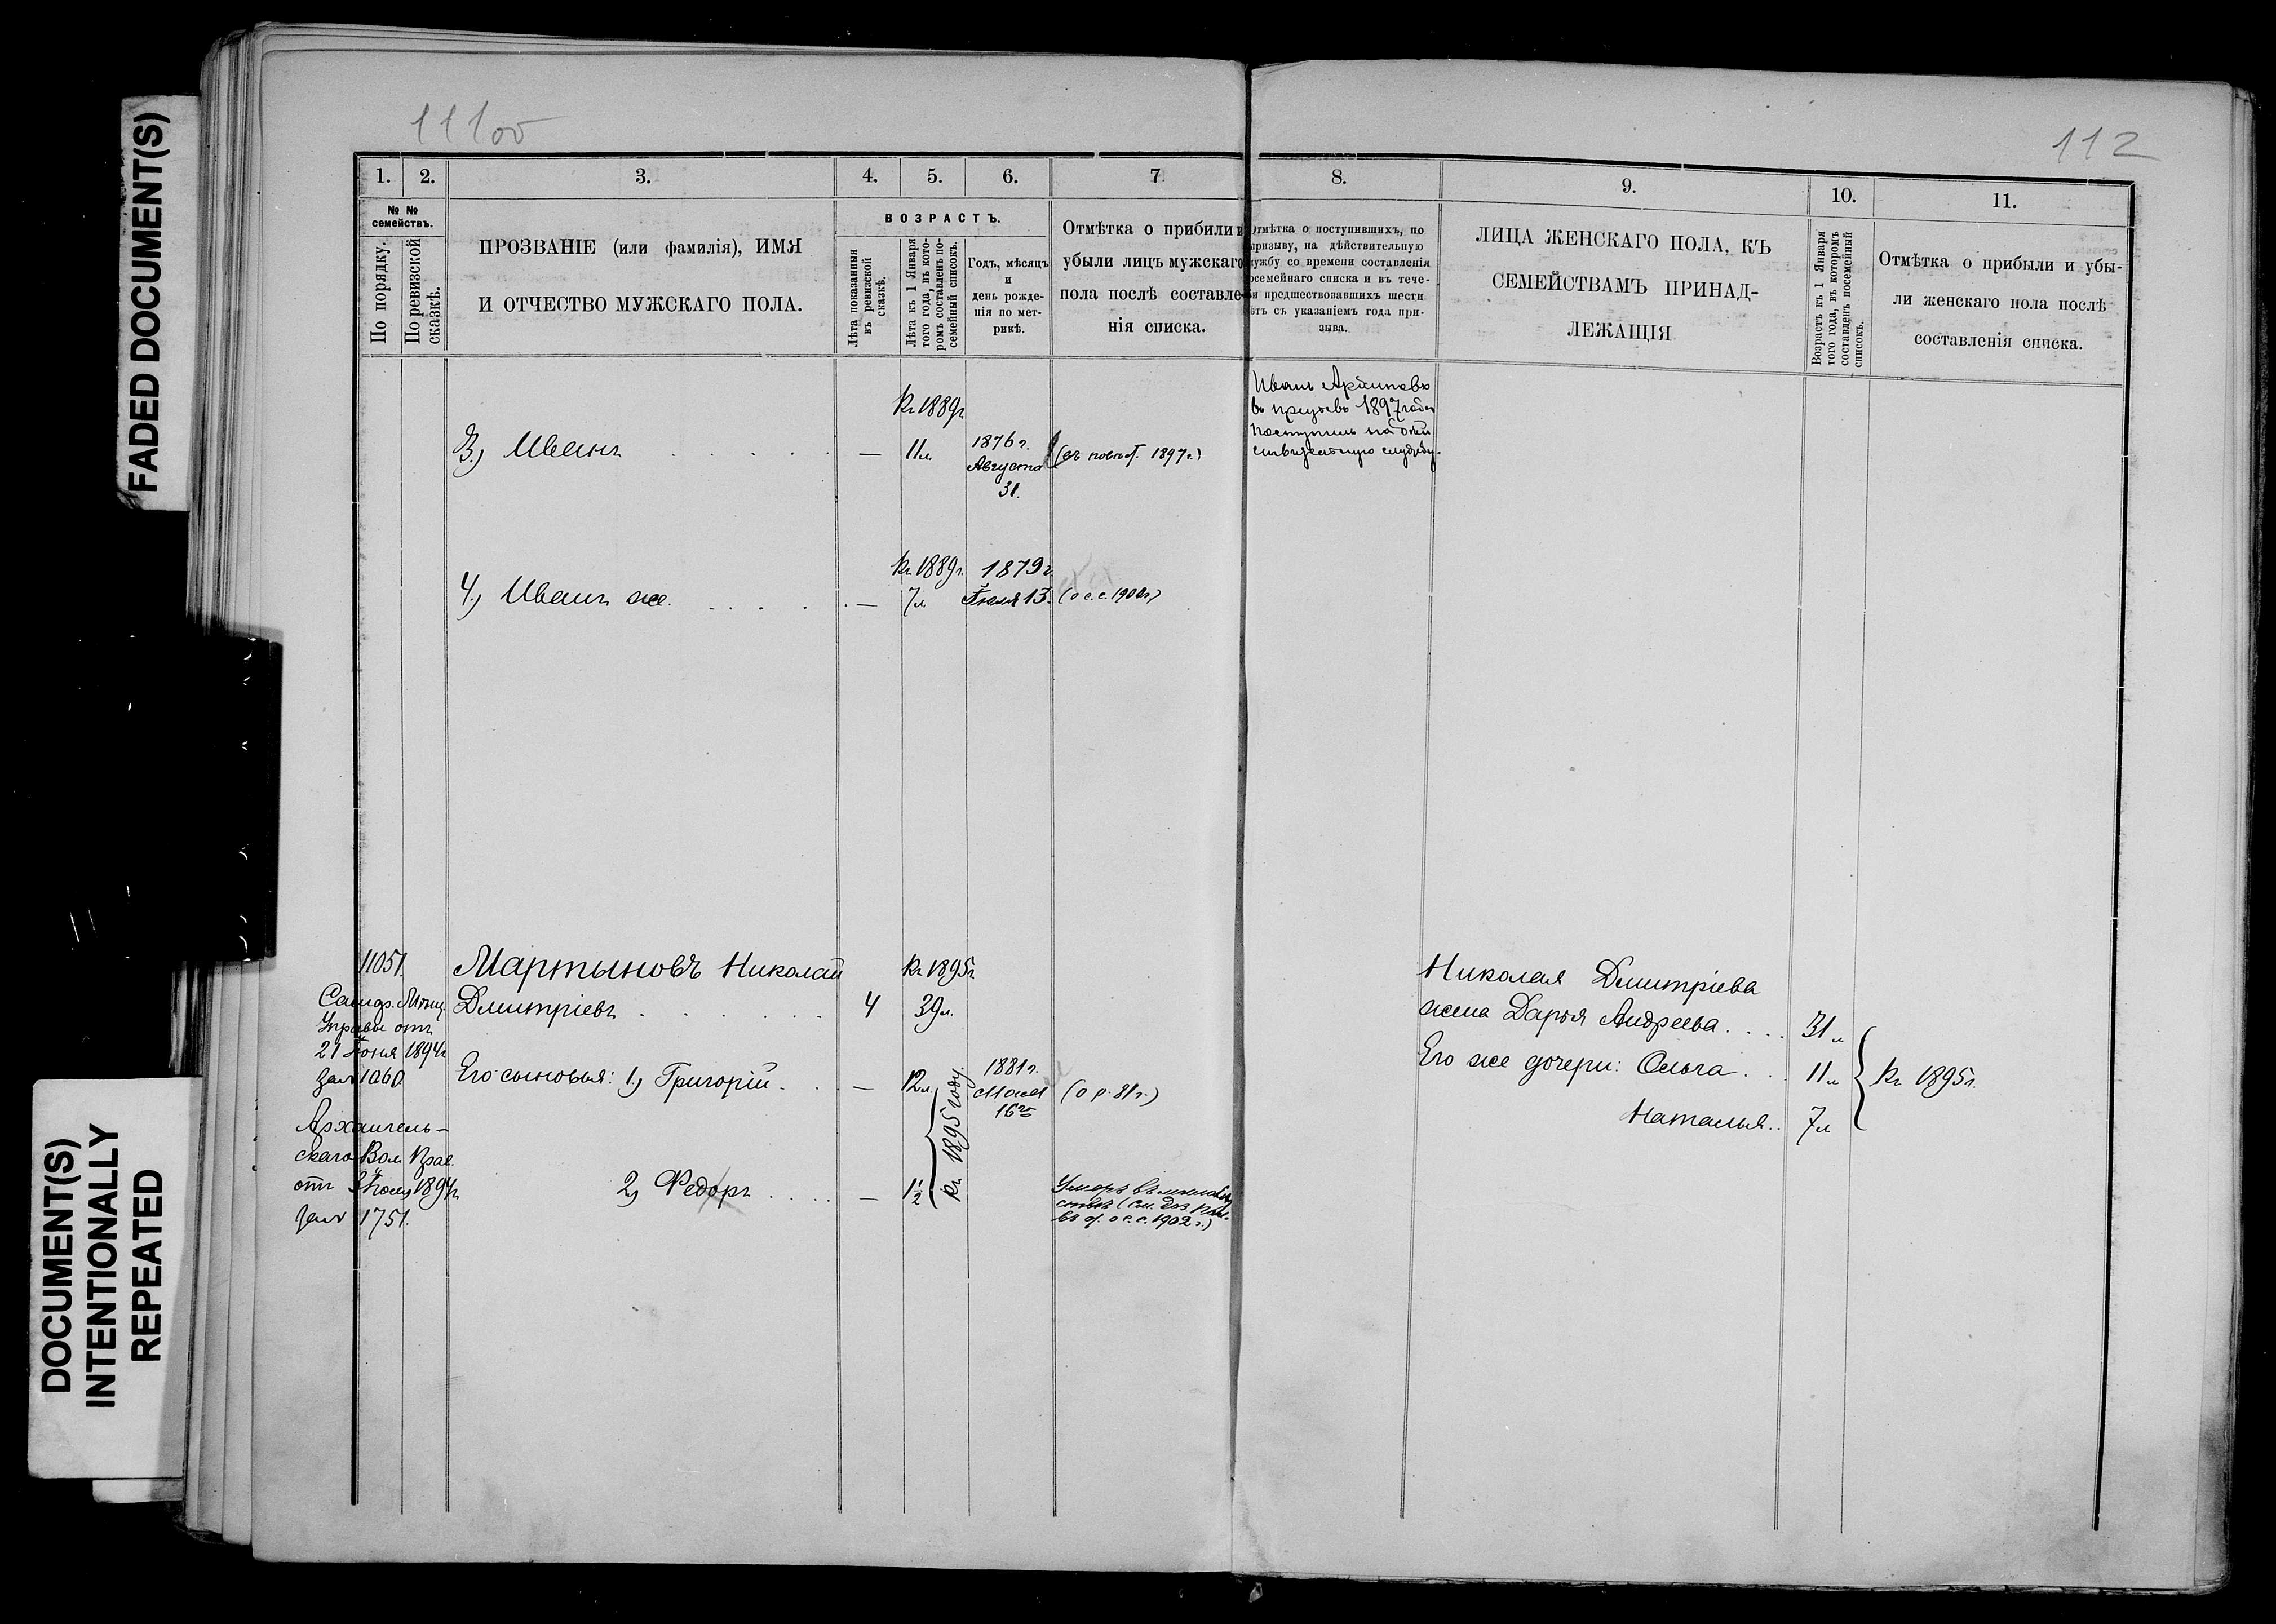 FADED DOCUMENT(S)
DOCUMENT(S)
INTENTIONALLY
REPEATED
111об
112
1. 2. 3. 4. 5. 6. 7 8. 9. 10. 11.
№ №
семействъ.
По порядку.
По ревизской
сказкѣ.
ПРОЗВАНІЕ (или фамилія), ИМЯ
И ОТЧЕСТВО МУЖСКАГО ПОЛА.
ВОЗРАСТЪ.
Лѣта показанныя
въ ревизской
сказкѣ.
Лѣта къ 1 Января
того года, въ кото-
ромъ составленъ по-
семейный списокъ.
Годъ, мѣсяцъ
и
день рожде-
нія по мет-
рикѣ.
Отмѣтка о прибыли и
убыли лицъ мужскаго
пола послѣ составле-
нія списка.
Отмѣтка о поступившихъ, по
призыву, на дѣйствительную
службу со времени составленія
посемейнаго списка и въ тече-
и предшествовавшихъ шести
лѣтъ съ указаніемъ года при-
зыва.
ЛИЦА ЖЕНСКАГО ПОЛА, КЪ
СЕМЕЙСТВАМЪ ПРИНАД-
ЛЕЖАЩІЯ
Возрастъ къ 1 Января
того года, въ которомъ
составленъ посемейный
списокъ.
Отмѣтка о прибыли и убы-
ли женскаго пола послѣ
составленія списка.
3.) Иванъ . . . . . —
Къ 1889г
11л
1876 г.
Августа
31.
1897 г.)
Иванъ
въ призывъ 1897 года
поступилъ на дѣй
ствительную службу.
4.) Иванъ же. . . . . . —
Къ 1889г.
7л
1879 г.
Іюля 13.
(о с. с. 1900г)
11051.
Мѣщ.
Управы отъ
21 Іюня 1894г
за № 1060
Архангель-
скаго Вол. Прав.
отъ 3 1894г.
за № 1751.
Мартыновъ Николай
Дмитріевъ . . . . . . 4
Къ 1895г
39л.
Его сыновья: 1.) Григорій. . . —
12л
1881 г.
Мая
16го
(о р. 81 г.)
2.) Федоръ . . . . —
1½
Къ 1895 году.
Умеръ
въ 1902 г.)
Николая Дмитріева
жена Дарья Андреева. . . . 31л
Его же дочери: Ольга. . . 11л
Наталья. . 7л
Къ 1895г.